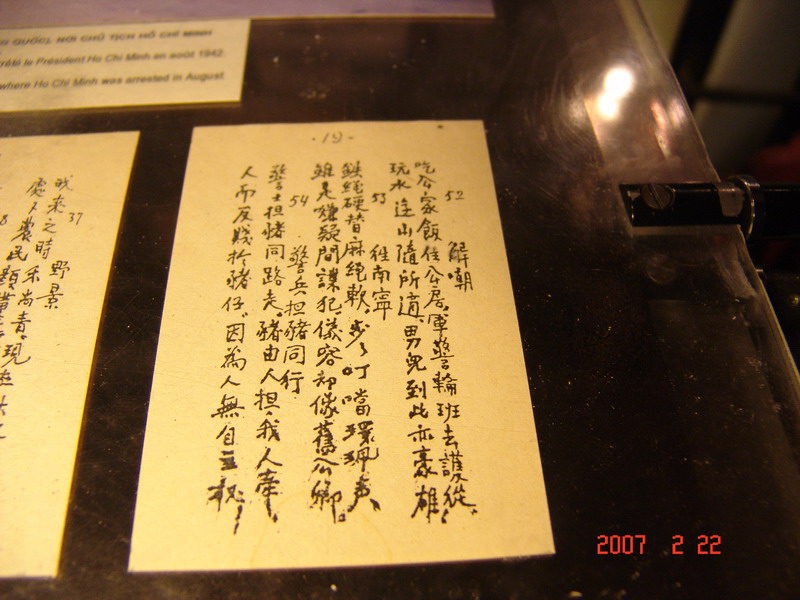 QUỐC), NƠI CHỦ TỊCH HỒ CHÍ MINH
le Président Ho Chi Minh en août 1942
where Ho Chi Minh was arrested in August
·19·
52 解嘲
吃公家飯住公居,軍警輪班去護從,
玩水逛山隨所適,男兒到此亦豪雄
53 往南寧
鐵繩硬替麻繩軟,步々叮噹環珮声,
雖是嫌疑間諜犯,儀容却像舊公卿。
54 警兵担豬同行
警士担豬同路走,豬由人担,我人牽,
人而反賤於豬仔,因為人無自主权!
37 野景
我来之時禾尚青,現
處々農民顏帶
2007 2 22